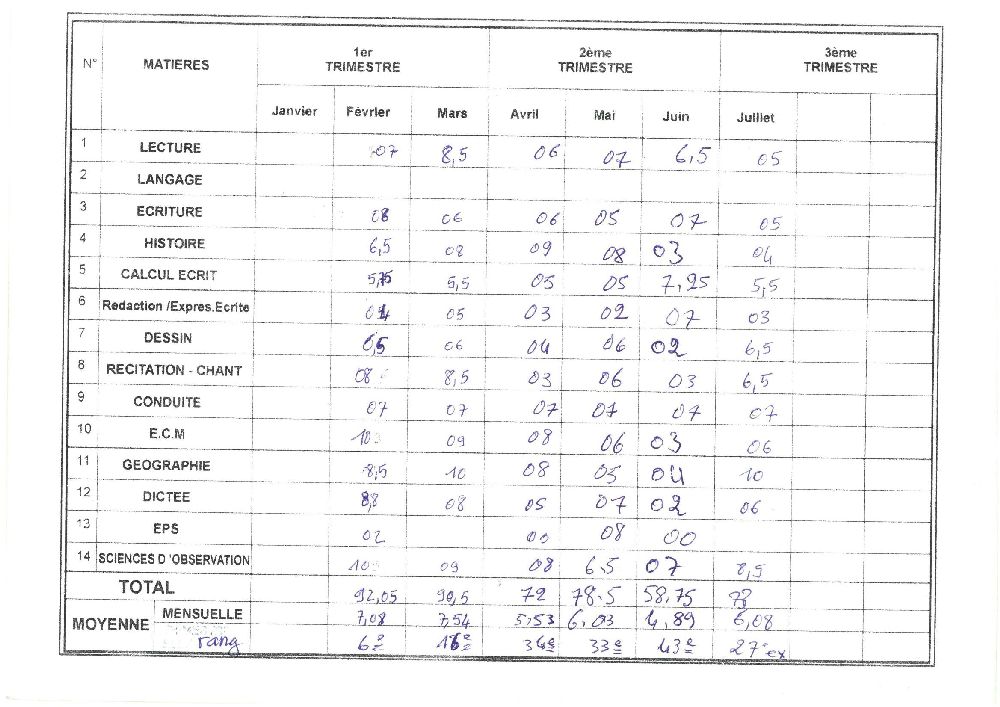 N° MATIERES 1er TRIMESTRE 2ème TRIMESTRE 3ème TRIMESTRE
Janvier Février Mars Avril Mai Juin Juillet
1 LECTURE 07 8,5 06 07 6,5 05
2 LANGAGE
3 ECRITURE 08 06 06 05 07 05
4 HISTOIRE 6,5 08 09 08 03 04
5 CALCUL ECRIT 5,75 5,5 05 05 7,25 5,5
6 Redaction /Expres.Ecrite 05 03 02 07 03
7 DESSIN 6,5 06 04 06 02 6,5
8 RECITATION - CHANT 08 8,5 03 06 03 6,5
9 CONDUITE 07 07 07 07 07 07
10 E.C.M 10 09 08 06 03 06
11 GEOGRAPHIE 8,5 10 08 05 04 10
12 DICTEE 08 05 07 02 06
13 EPS 02 00 08 00
14 SCIENCES D 'OBSERVATION 10 09 08 6.5 07 8,5
TOTAL 92,05 90,5 72 78.5 58,75
MOYENNE MENSUELLE 7,08 7,54 5,53 6,03 4,89 6,08
rang 6e 16e 34e 33e 43e 27e ex